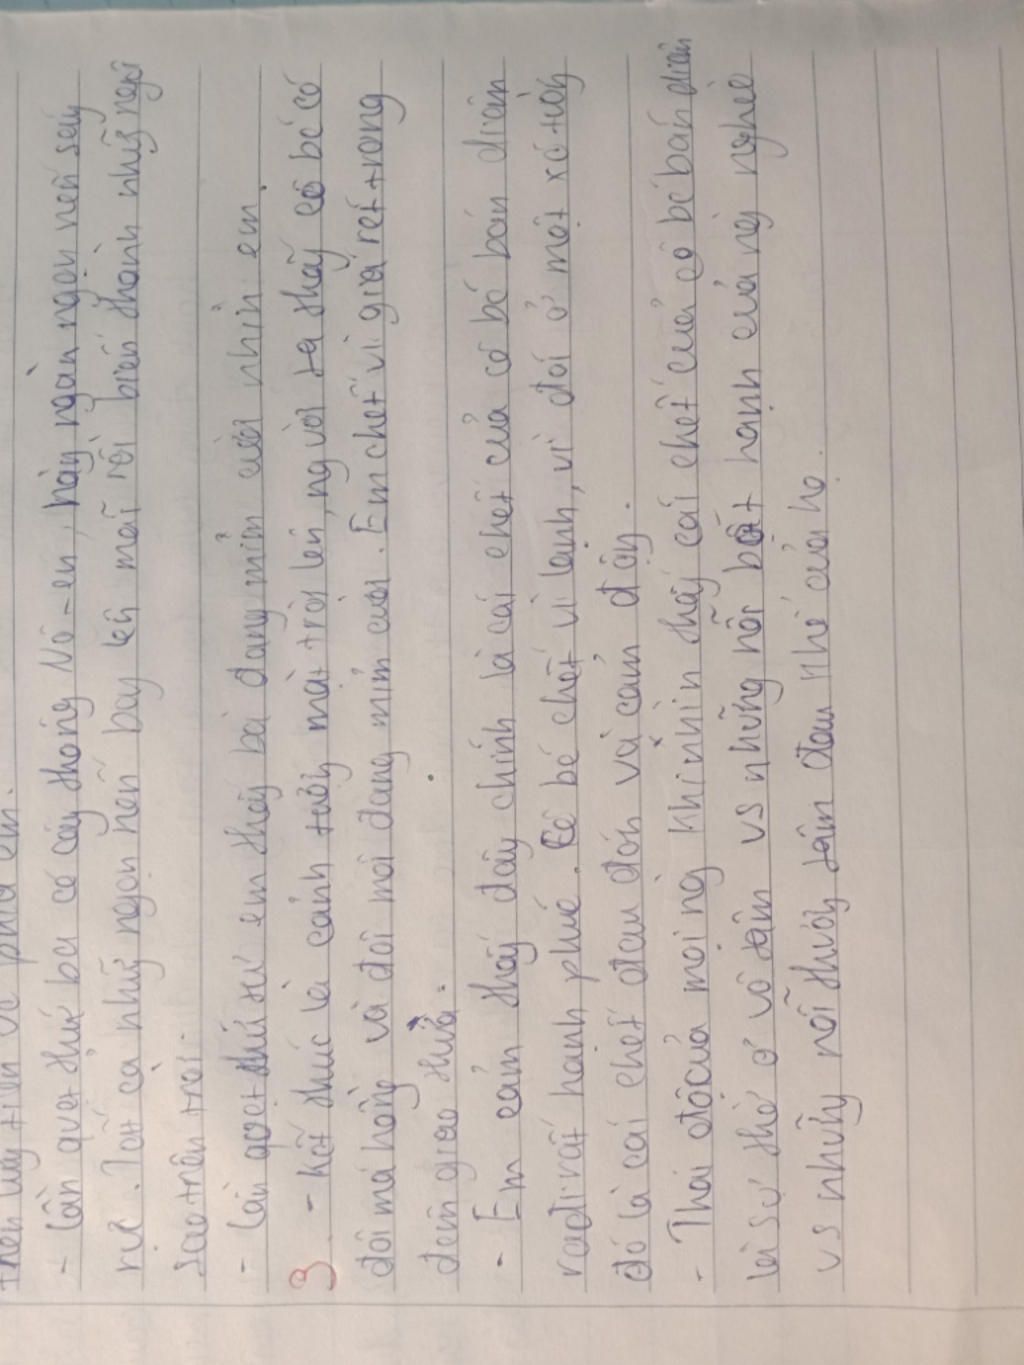 - lần quẹt thứ ba có cây thông Nô-en, hàng ngàn ngọn nến sáng
rực. Tất cả nhữg ngọn nến bay lên mãi rồi biến thành nhữg ngôi
sao trên trời.
- lần quẹt thứ tư em thấy bà đang mỉm cười nhìn em.
3 - Kết thúc là cảnh tượg mặt trời lên, người ta thấy cô bé có
đôi má hồng và đôi môi đang mỉm cười. Em chết vì giá rét trong
đêm giao thừa.
- Em cảm thấy đây chính là cái chết của cô bé bán diêm
ra đi rất hạnh phúc. Cô bé chết vì lạnh, vì đói ở một xó tườg
đó là cái chết đau đớn và cảm động.
- Thái độ của mọi ng khi nhìn thấy cái chết của cô bé bán diêm
là sự thờ ơ vô tâm vs những nỗi bất hạnh của ng nghèo
vs nhữg nỗi thươg tâm đau khổ của họ.